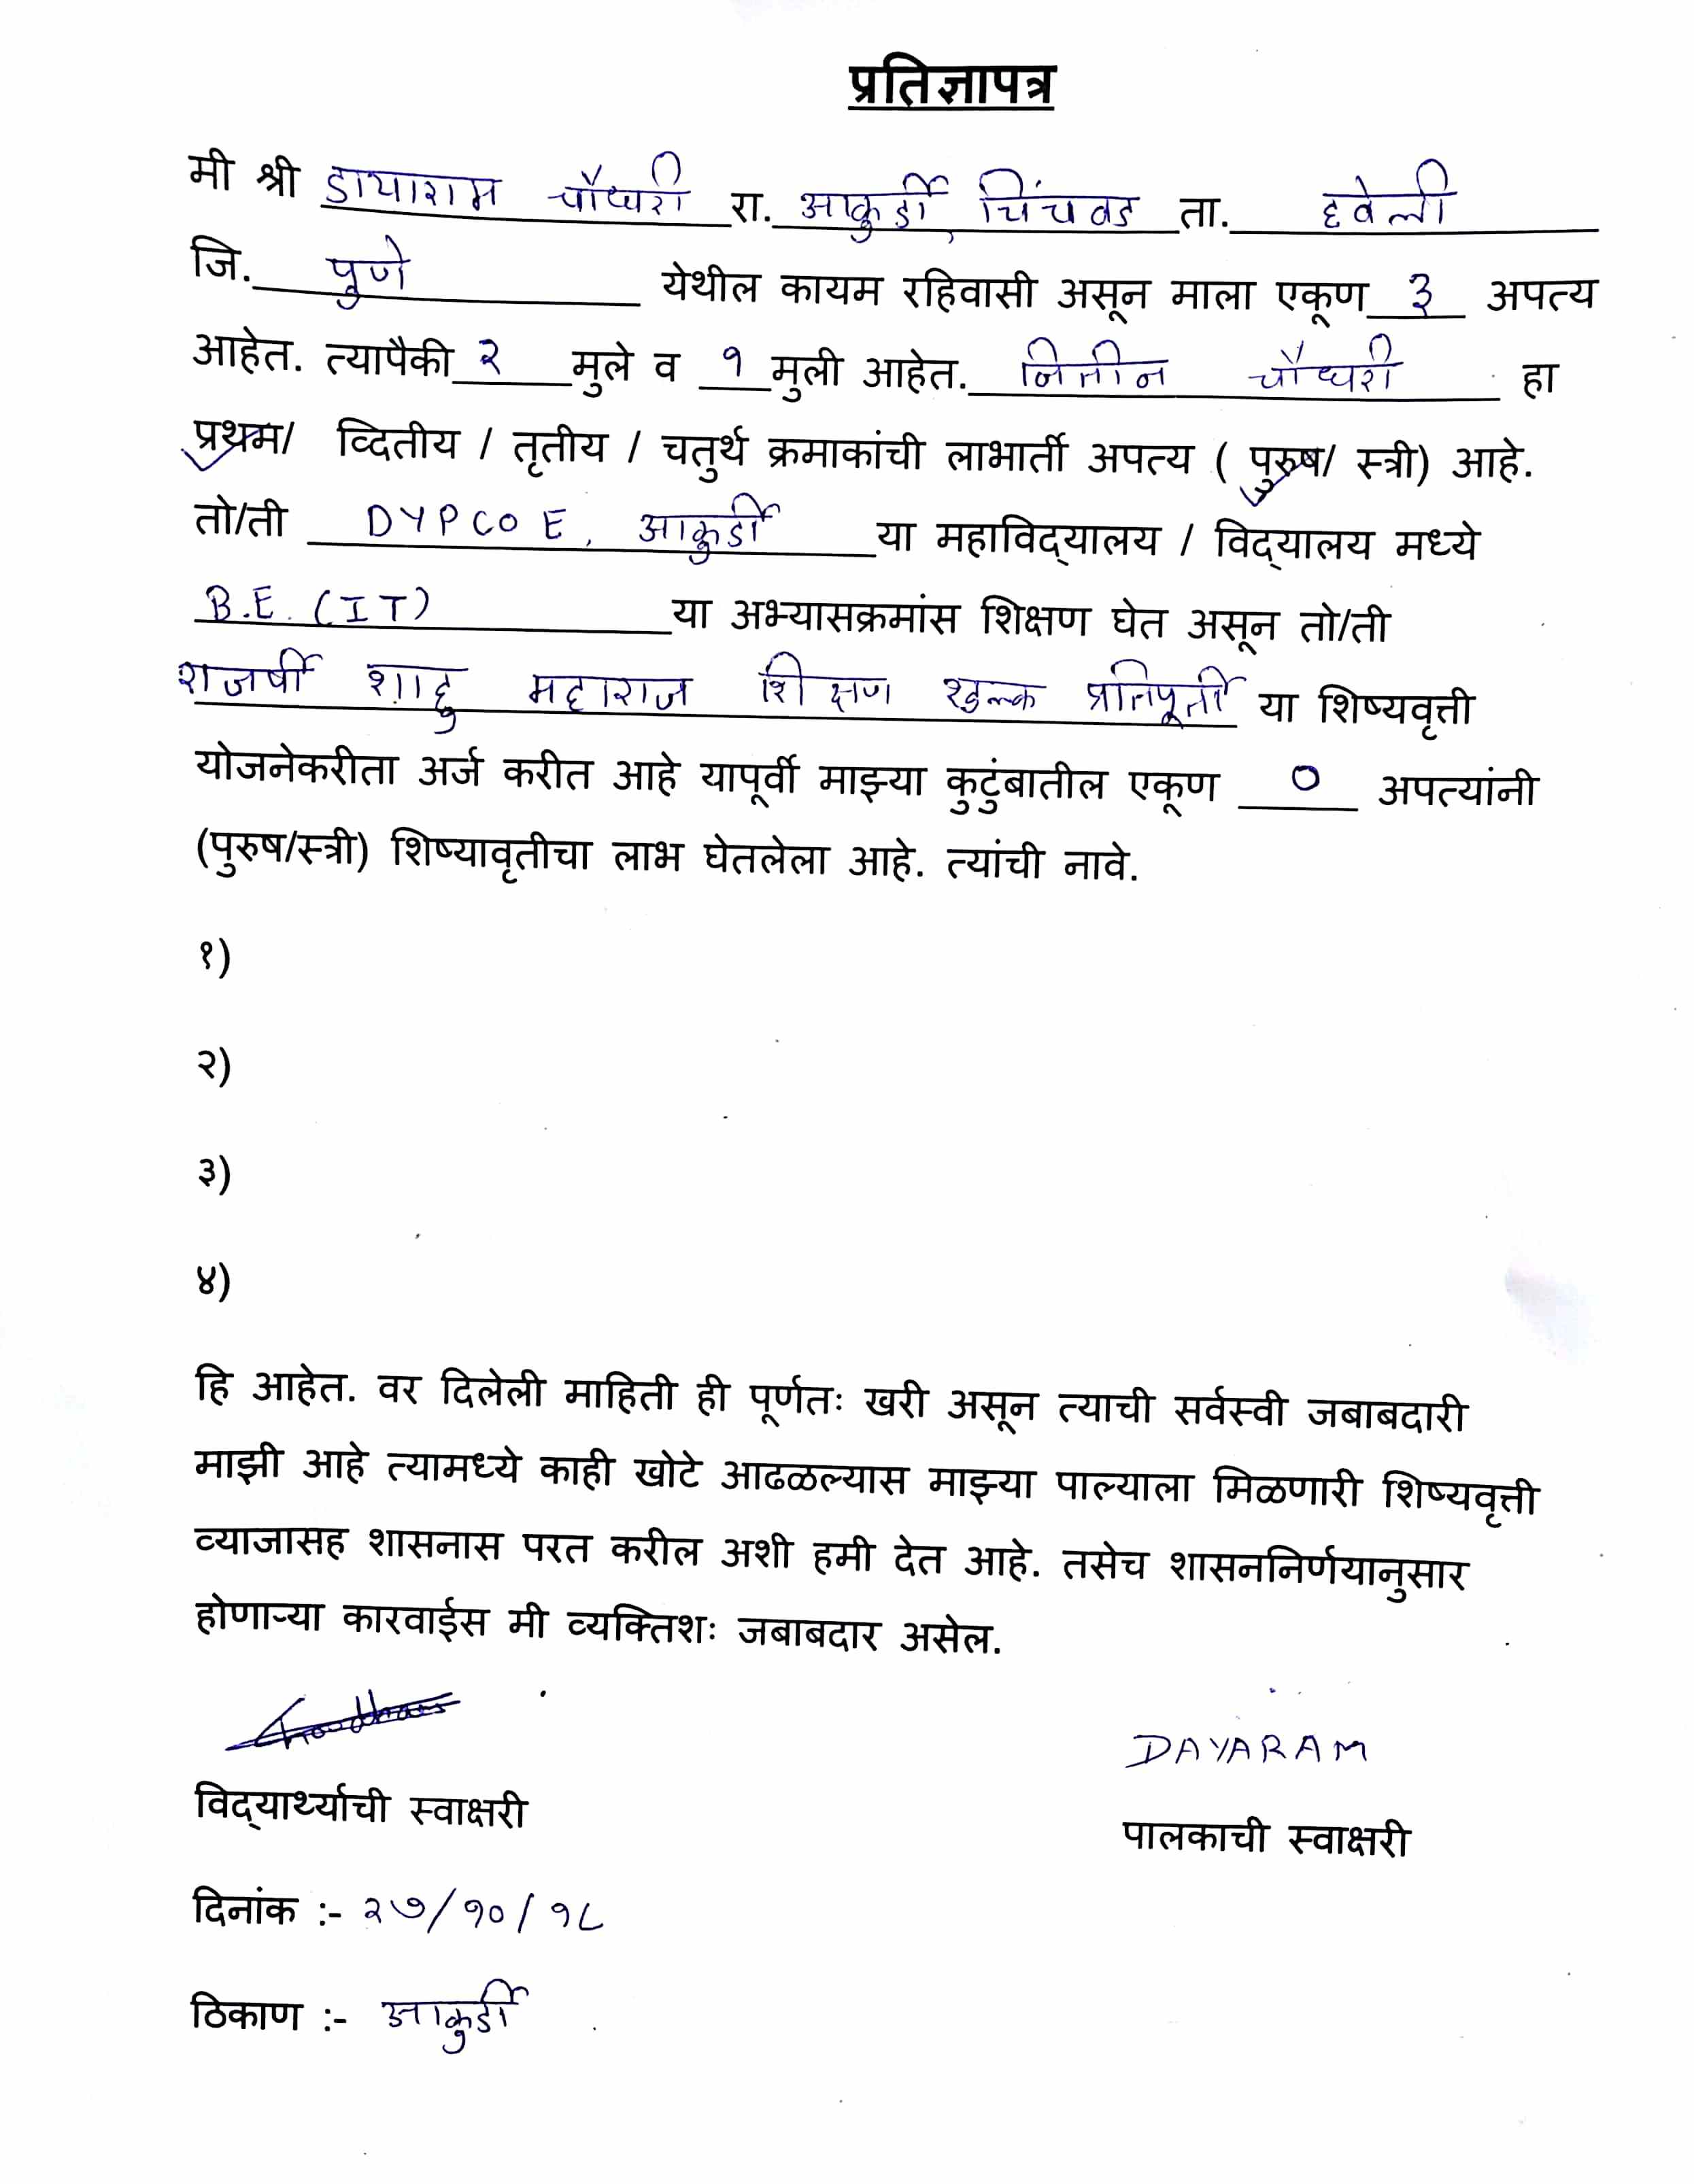 प्रतिज्ञापत्र
मी श्री डायाराम चौधरी रा. आकुर्डी, चिंचवड ता. हवेली
जि. पुणे येथील कायम रहिवासी असून माला एकूण ३ अपत्य
आहेत. त्यापैकी २ मुले व १ मुली आहेत. नितीन चौधरी हा
प्रथम/ व्दितीय / तृतीय / चतुर्थ क्रमाकांची लाभार्ती अपत्य ( पुरुष/ स्त्री) आहे.
तो/ती DYPCOE, आकुर्डी या महाविद्यालय / विद्यालय मध्ये
B.E. (IT) या अभ्यासक्रमांस शिक्षण घेत असून तो/ती
राजर्षी शाहु महाराज शिक्षण शुल्क प्रतिपूर्ती या शिष्यवृत्ती
योजनेकरीता अर्ज करीत आहे यापूर्वी माझ्या कुटुंबातील एकूण ० अपत्यांनी
(पुरुष/स्त्री) शिष्यावृतीचा लाभ घेतलेला आहे. त्यांची नावे.
१)
२)
३)
४)
हि आहेत. वर दिलेली माहिती ही पूर्णतः खरी असून त्याची सर्वस्वी जबाबदारी
माझी आहे त्यामध्ये काही खोटे आढळल्यास माझ्या पाल्याला मिळणारी शिष्यवृत्ती
व्याजासह शासनास परत करील अशी हमी देत आहे. तसेच शासननिर्णयानुसार
होणाऱ्या कारवाईस मी व्यक्तिशः जबाबदार असेल.
DAYARAM
विद्यार्थ्याची स्वाक्षरी पालकाची स्वाक्षरी
दिनांक :- २७/१०/१८
ठिकाण :- आकुर्डी